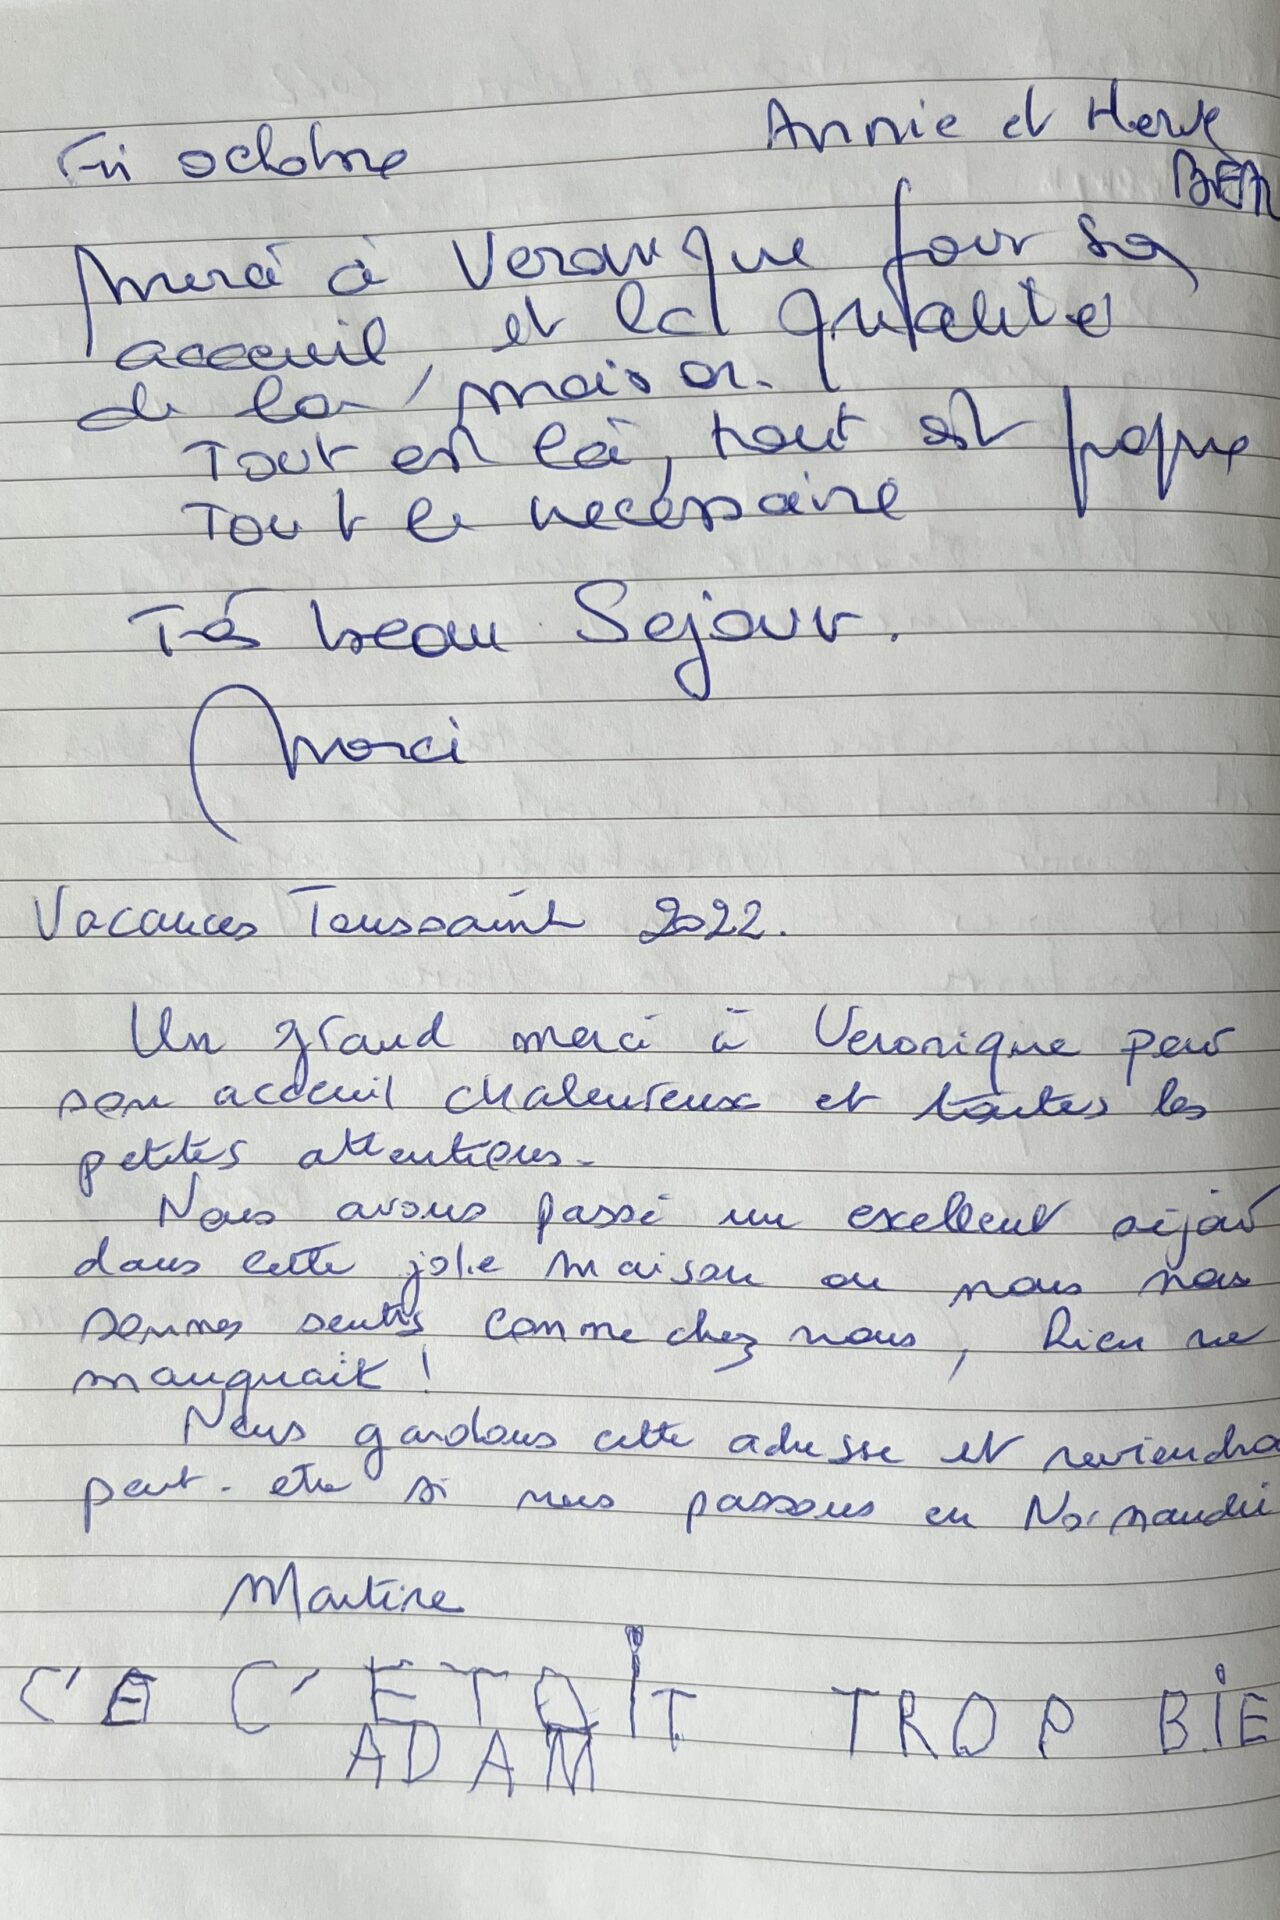 Fin octobre
Annie et Herve
BEA
Merci à Veronique pour sa
acceuil, et la qualité
de la maison.
Tout est là, tout est propre
Tout le necessaire
Très beau Sejour.
Merci
Vacances Toussaint 2022.
Un grand merci à Veronique pour
son acceuil chaleureux et toutes les
petites attentions.
Nous avons passé un excellent séjour
dans cette jolie maison ou nous nous
sommes sentis comme chez nous, Rien ne
manquait !
Nous gardons cette adresse et reviendro
peut-etre si nous passons en Normandi
Martine
C'E C'ETAIT TROP BIE
ADAM